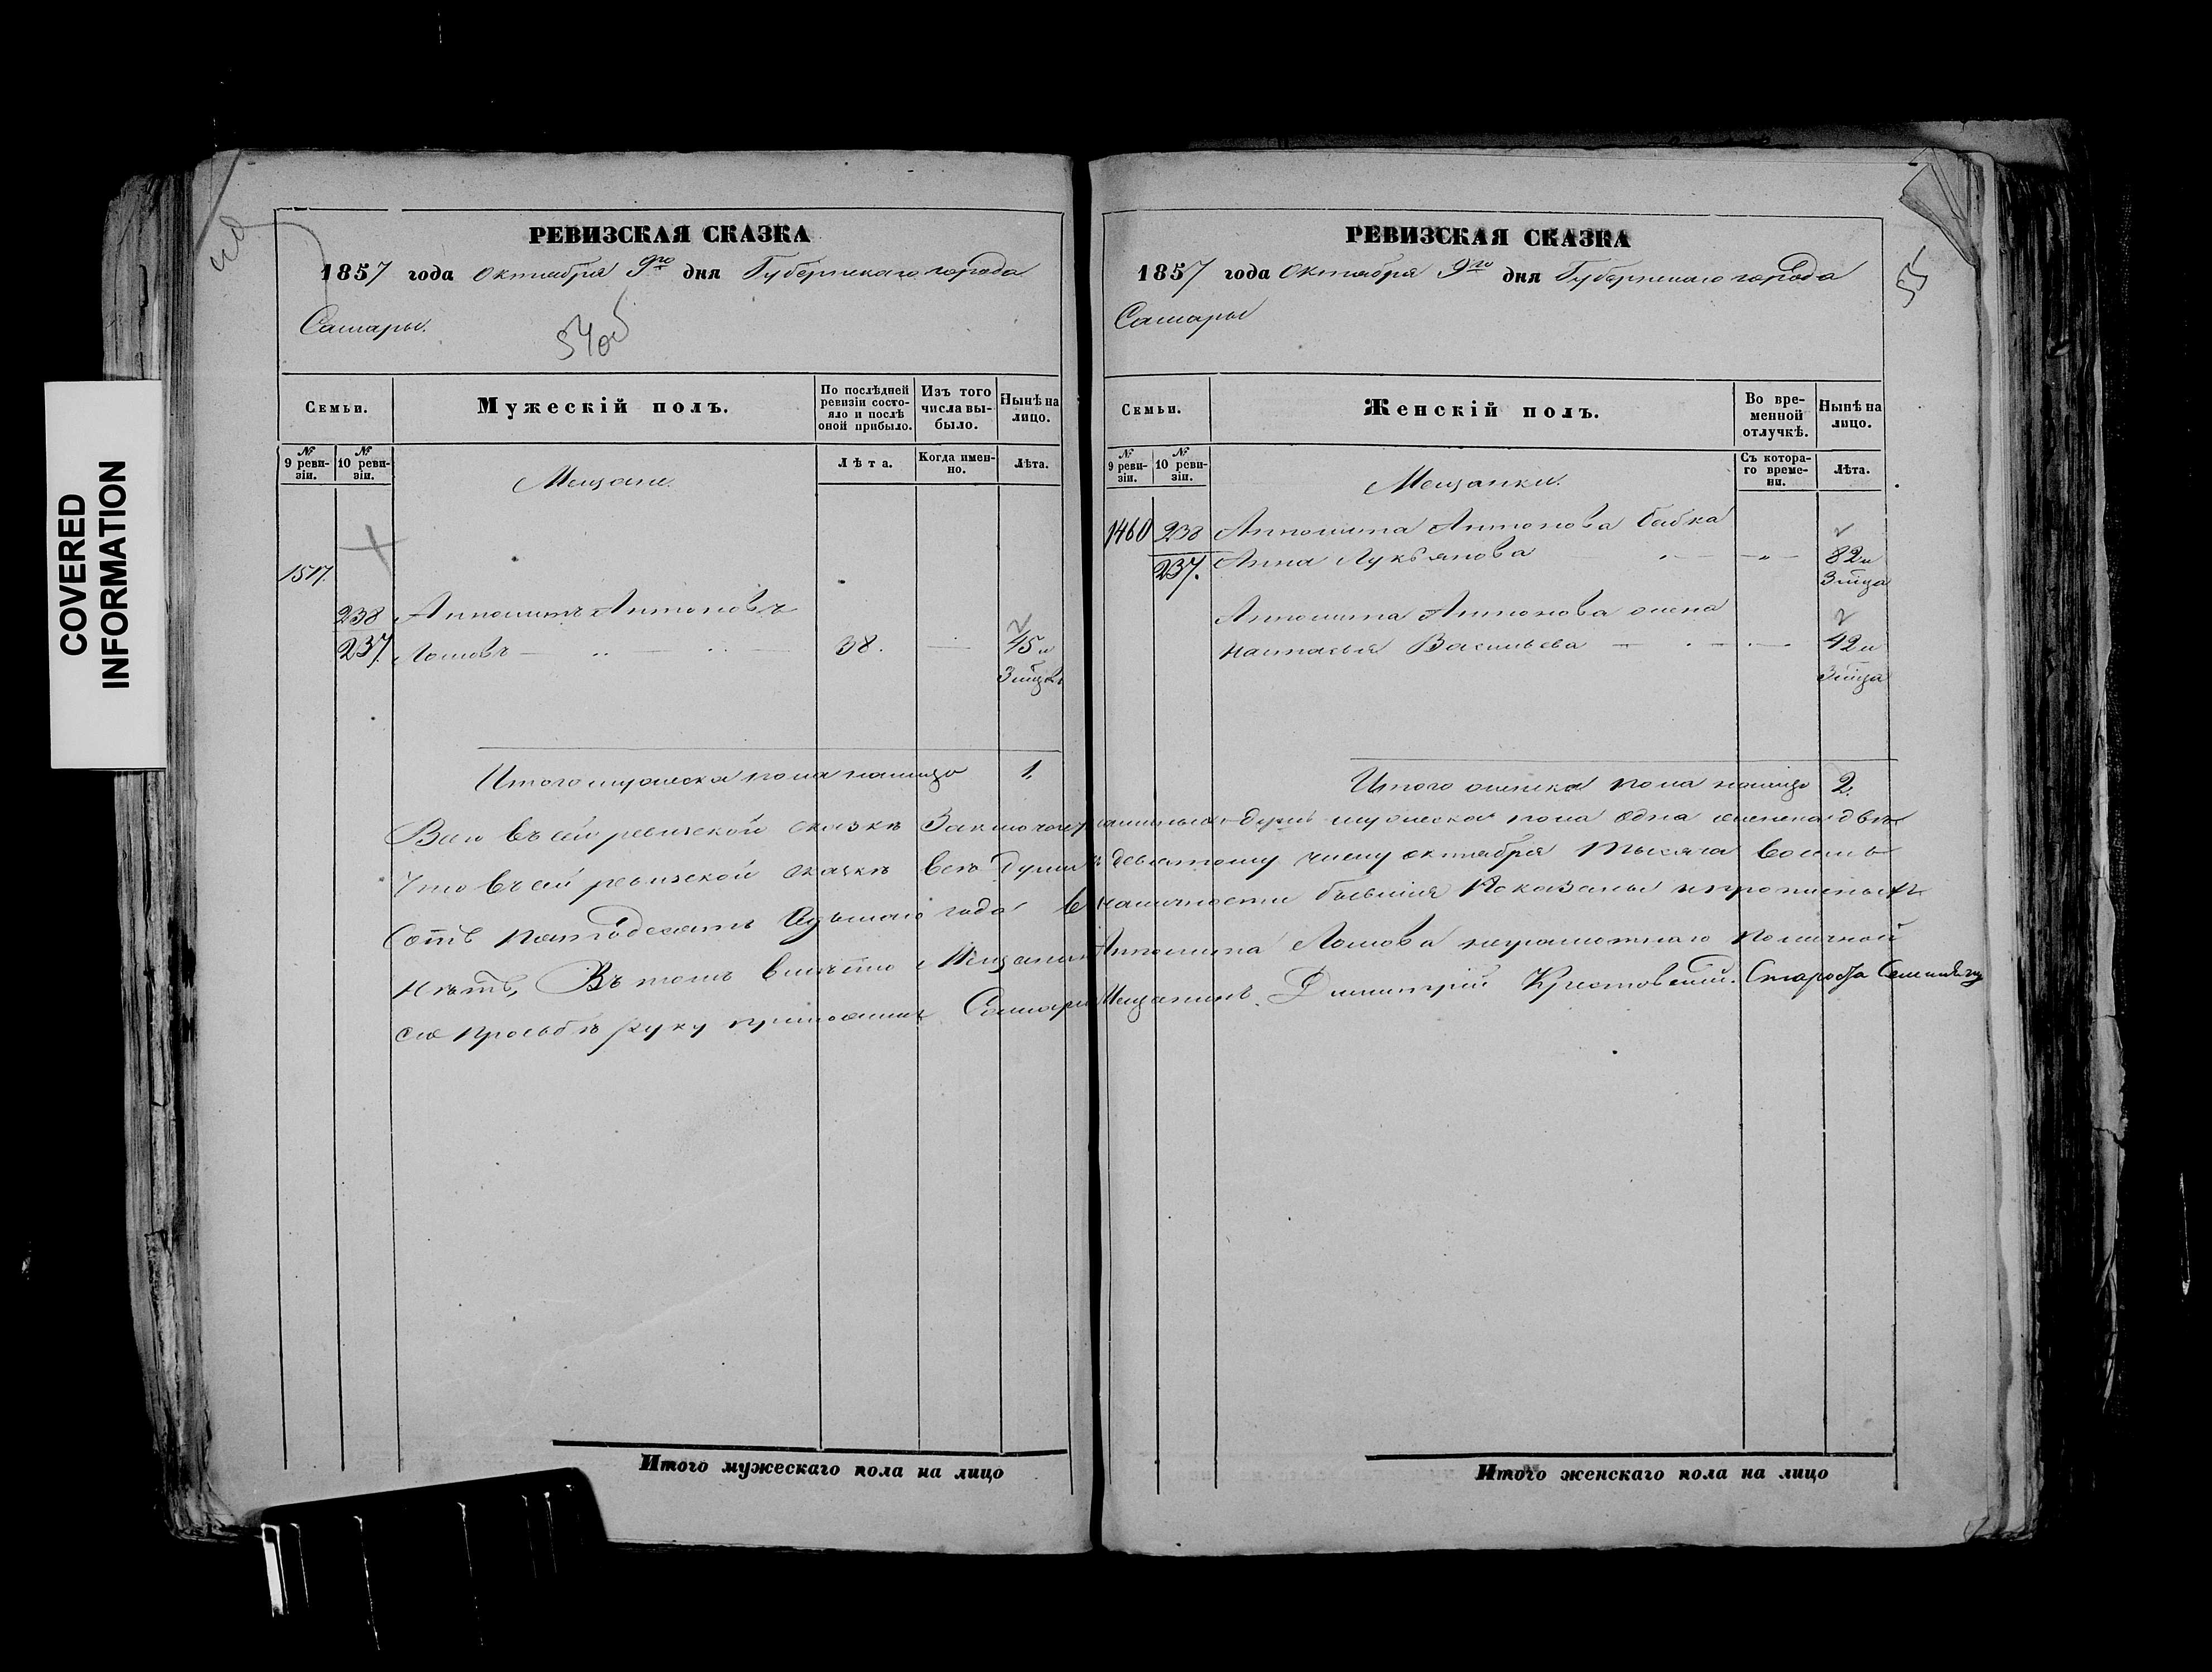 COVERED
INFORMATION
РЕВИЗСКАЯ СКАЗКА
1857 года Октября 9го дня Губернскаго города
Самары.
54об
Семьи.
Мужескій полъ.
По послѣдней ревизіи состояло и послѣ оной прибыло.
Изъ того числа выбыло.
Нынѣ на лицо.
№ 9 ревизіи.
№ 10 ревизіи.
Лѣта.
Когда именно.
Лѣта.
Мещане.
1517.
238 Антонъ
237. Ломовъ — 38. — 45 и
3 мцв
Итого мужеска пола налицо 1.
РЕВИЗСКАЯ СКАЗКА
1857 года Октября 9го дня Губернскаго города
Самары
55
Семьи.
Женскій полъ.
Во временной отлучкѣ.
Нынѣ на лицо.
№ 9 ревизіи.
№ 10 ревизіи.
Съ котораго времени.
Лѣта.
Мещанки.
1460 238 Антонова
237. Анна Лукьянова — „ — 82 и
3 мца
Антонова жена
Настасья Васильева — 42 и
3 мца
Итого женска пола налицо 2.
Всего въ сей ревизской сказкѣ душъ мужеска пола одна женска двѣ
Что въ сей ревизской сказкѣ всѣ души къ девятому числу октября тысяча восемь
сотъ пятьдесятъ седьмаго года въ наличности бывшія показаны и прописныхъ
нѣтъ, Въ томъ вмѣсто Мещанина Ломова неграмотнаго по личной
его просьбѣ руку приложилъ Самарск Мещанинъ Димитрій Крестовскій. Староста
Итого мужескаго пола на лицо
Итого женскаго пола на лицо